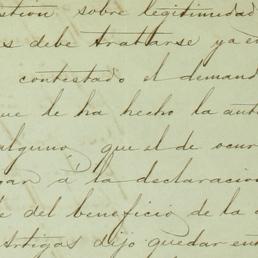 estion sobre legitimidad
s debe tratarse ya en
contestado el demand
ue le ha hecho la aut
alguno que el de ocur
gar á la declaracion
e del beneficio de la
Artigas dijo quedar en